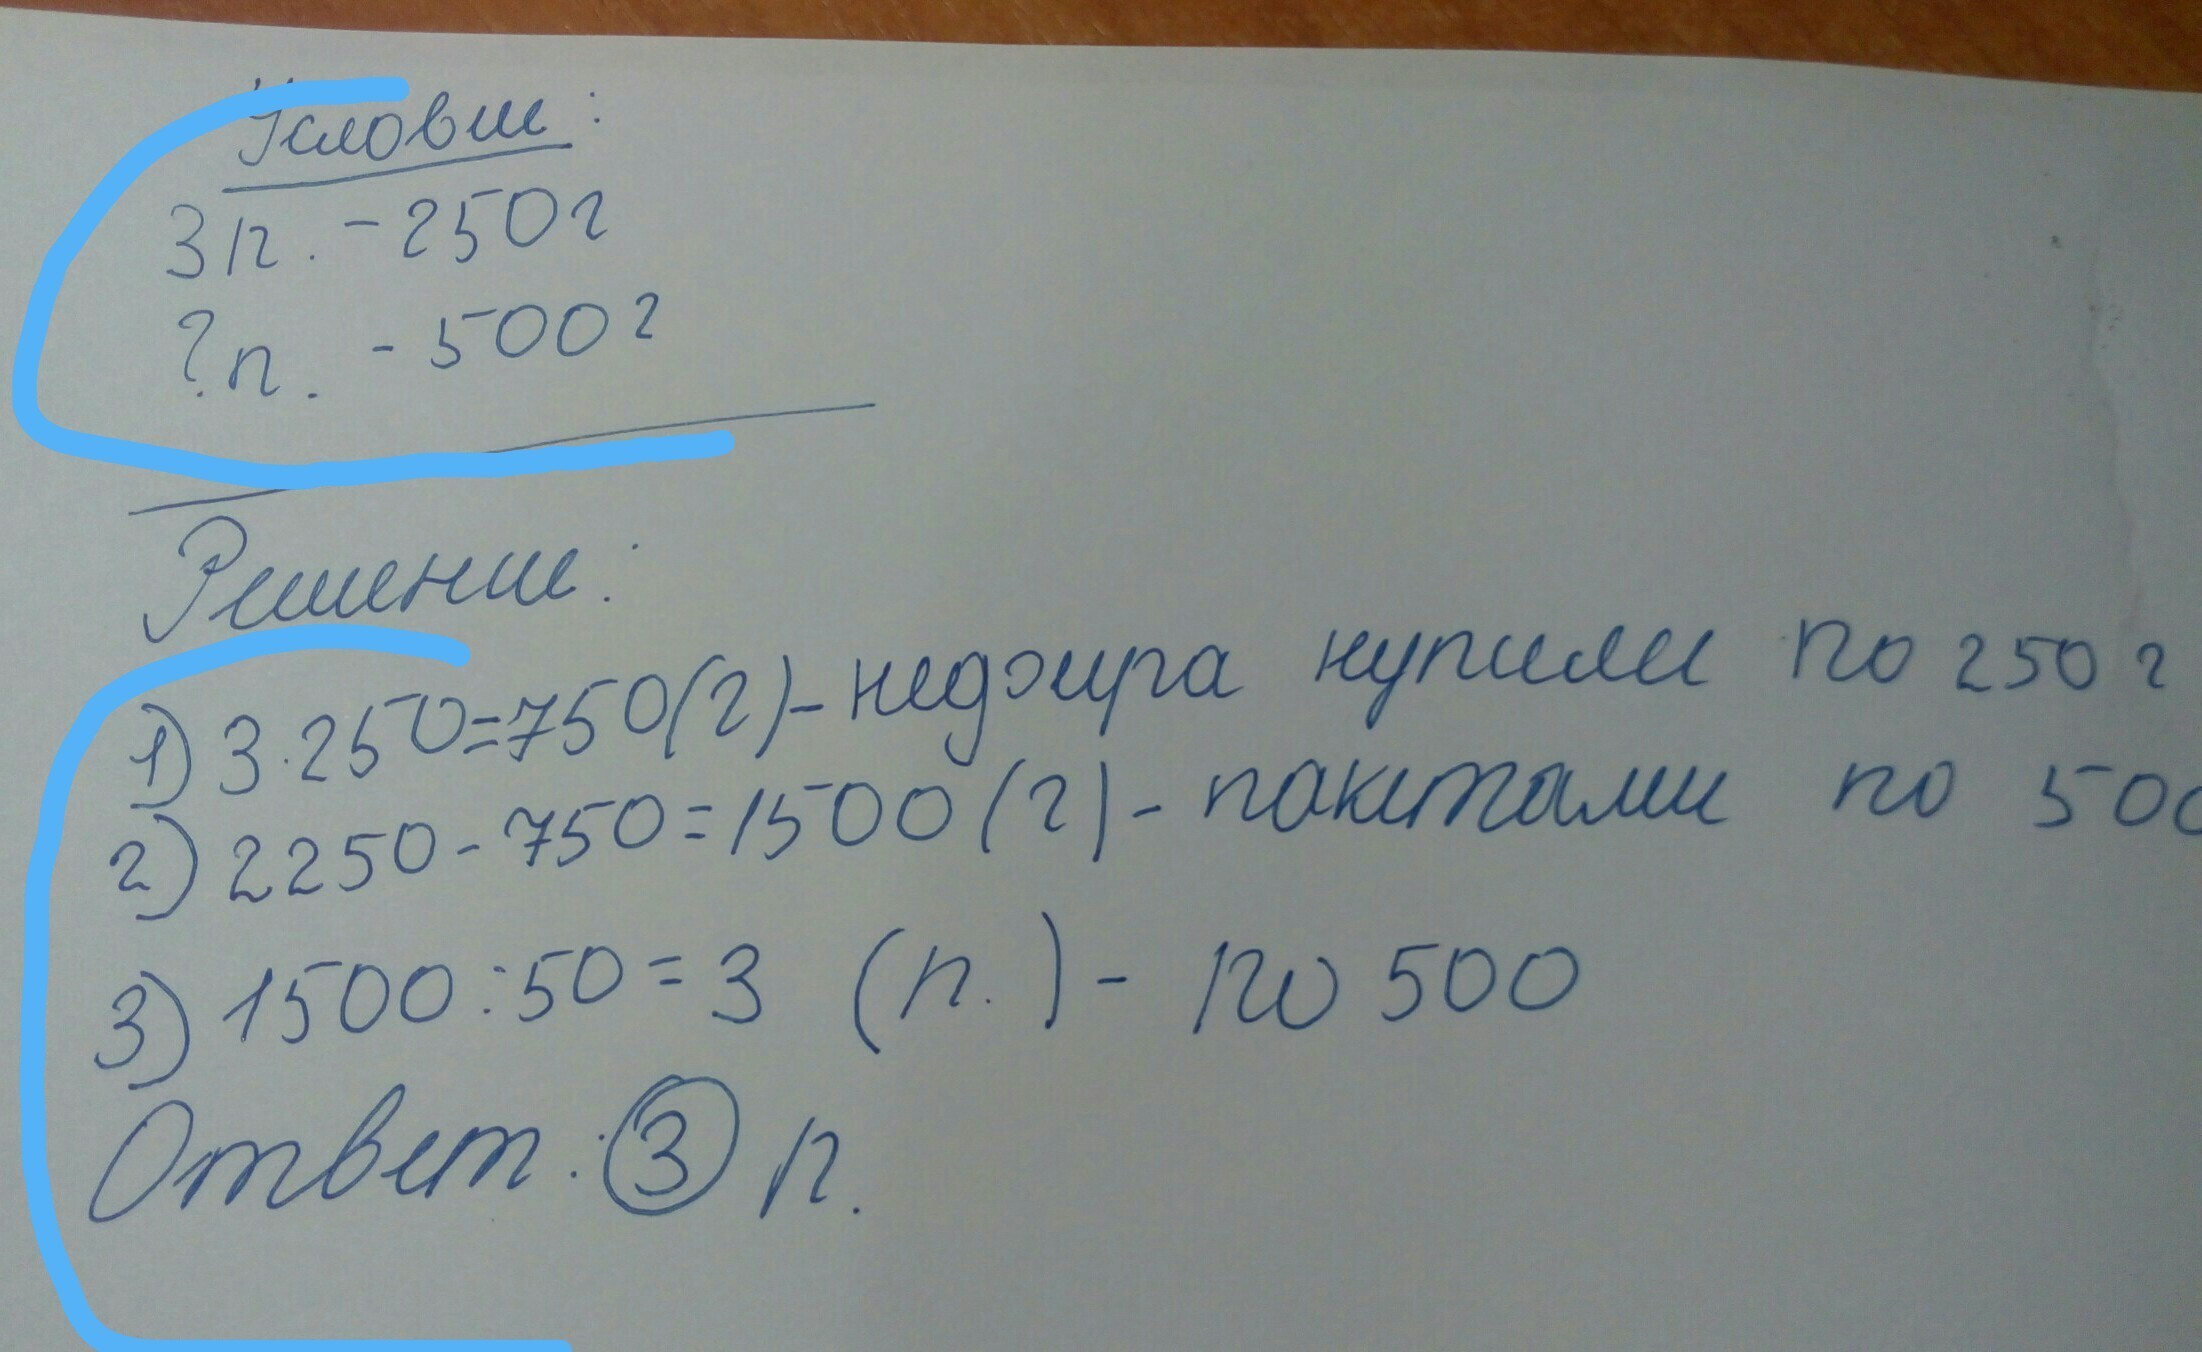 Условие:
3 п. - 250 г
? п. - 500 г
Решение:
1) 3·250=750(г) - кефира купили по 250 г
2) 2250-750=1500(г) - пакетами по 500
3) 1500:50=3 (п.) - по 500
Ответ: 3 п.